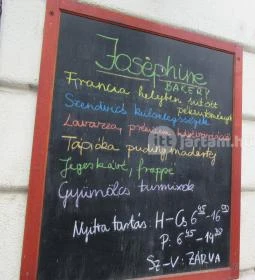 Joséphine
BAKERY
Francia helyben sütött
péksütemények
Szendvics különlegességek
Lavazza, prémium kávévarázs
Tápióka puding, madártej
Jegeskávé, frappé
Gyümölcs turmixok
Nyitva tartás: H-Cs 6⁴⁵-16⁰⁰
P: 6⁴⁵-14³⁰
Sz-V: ZÁRVA
itt jártam.hu